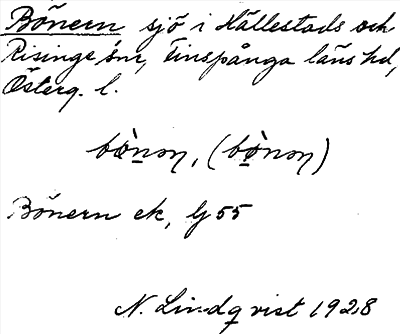 Bönern sjö i Hällestads och
Risinge snr, Finspånga läns hd,
Österg. l.
bø̀nən, (bø̀nən)
Bönern ek, G 55
N. Lindqvist 1928